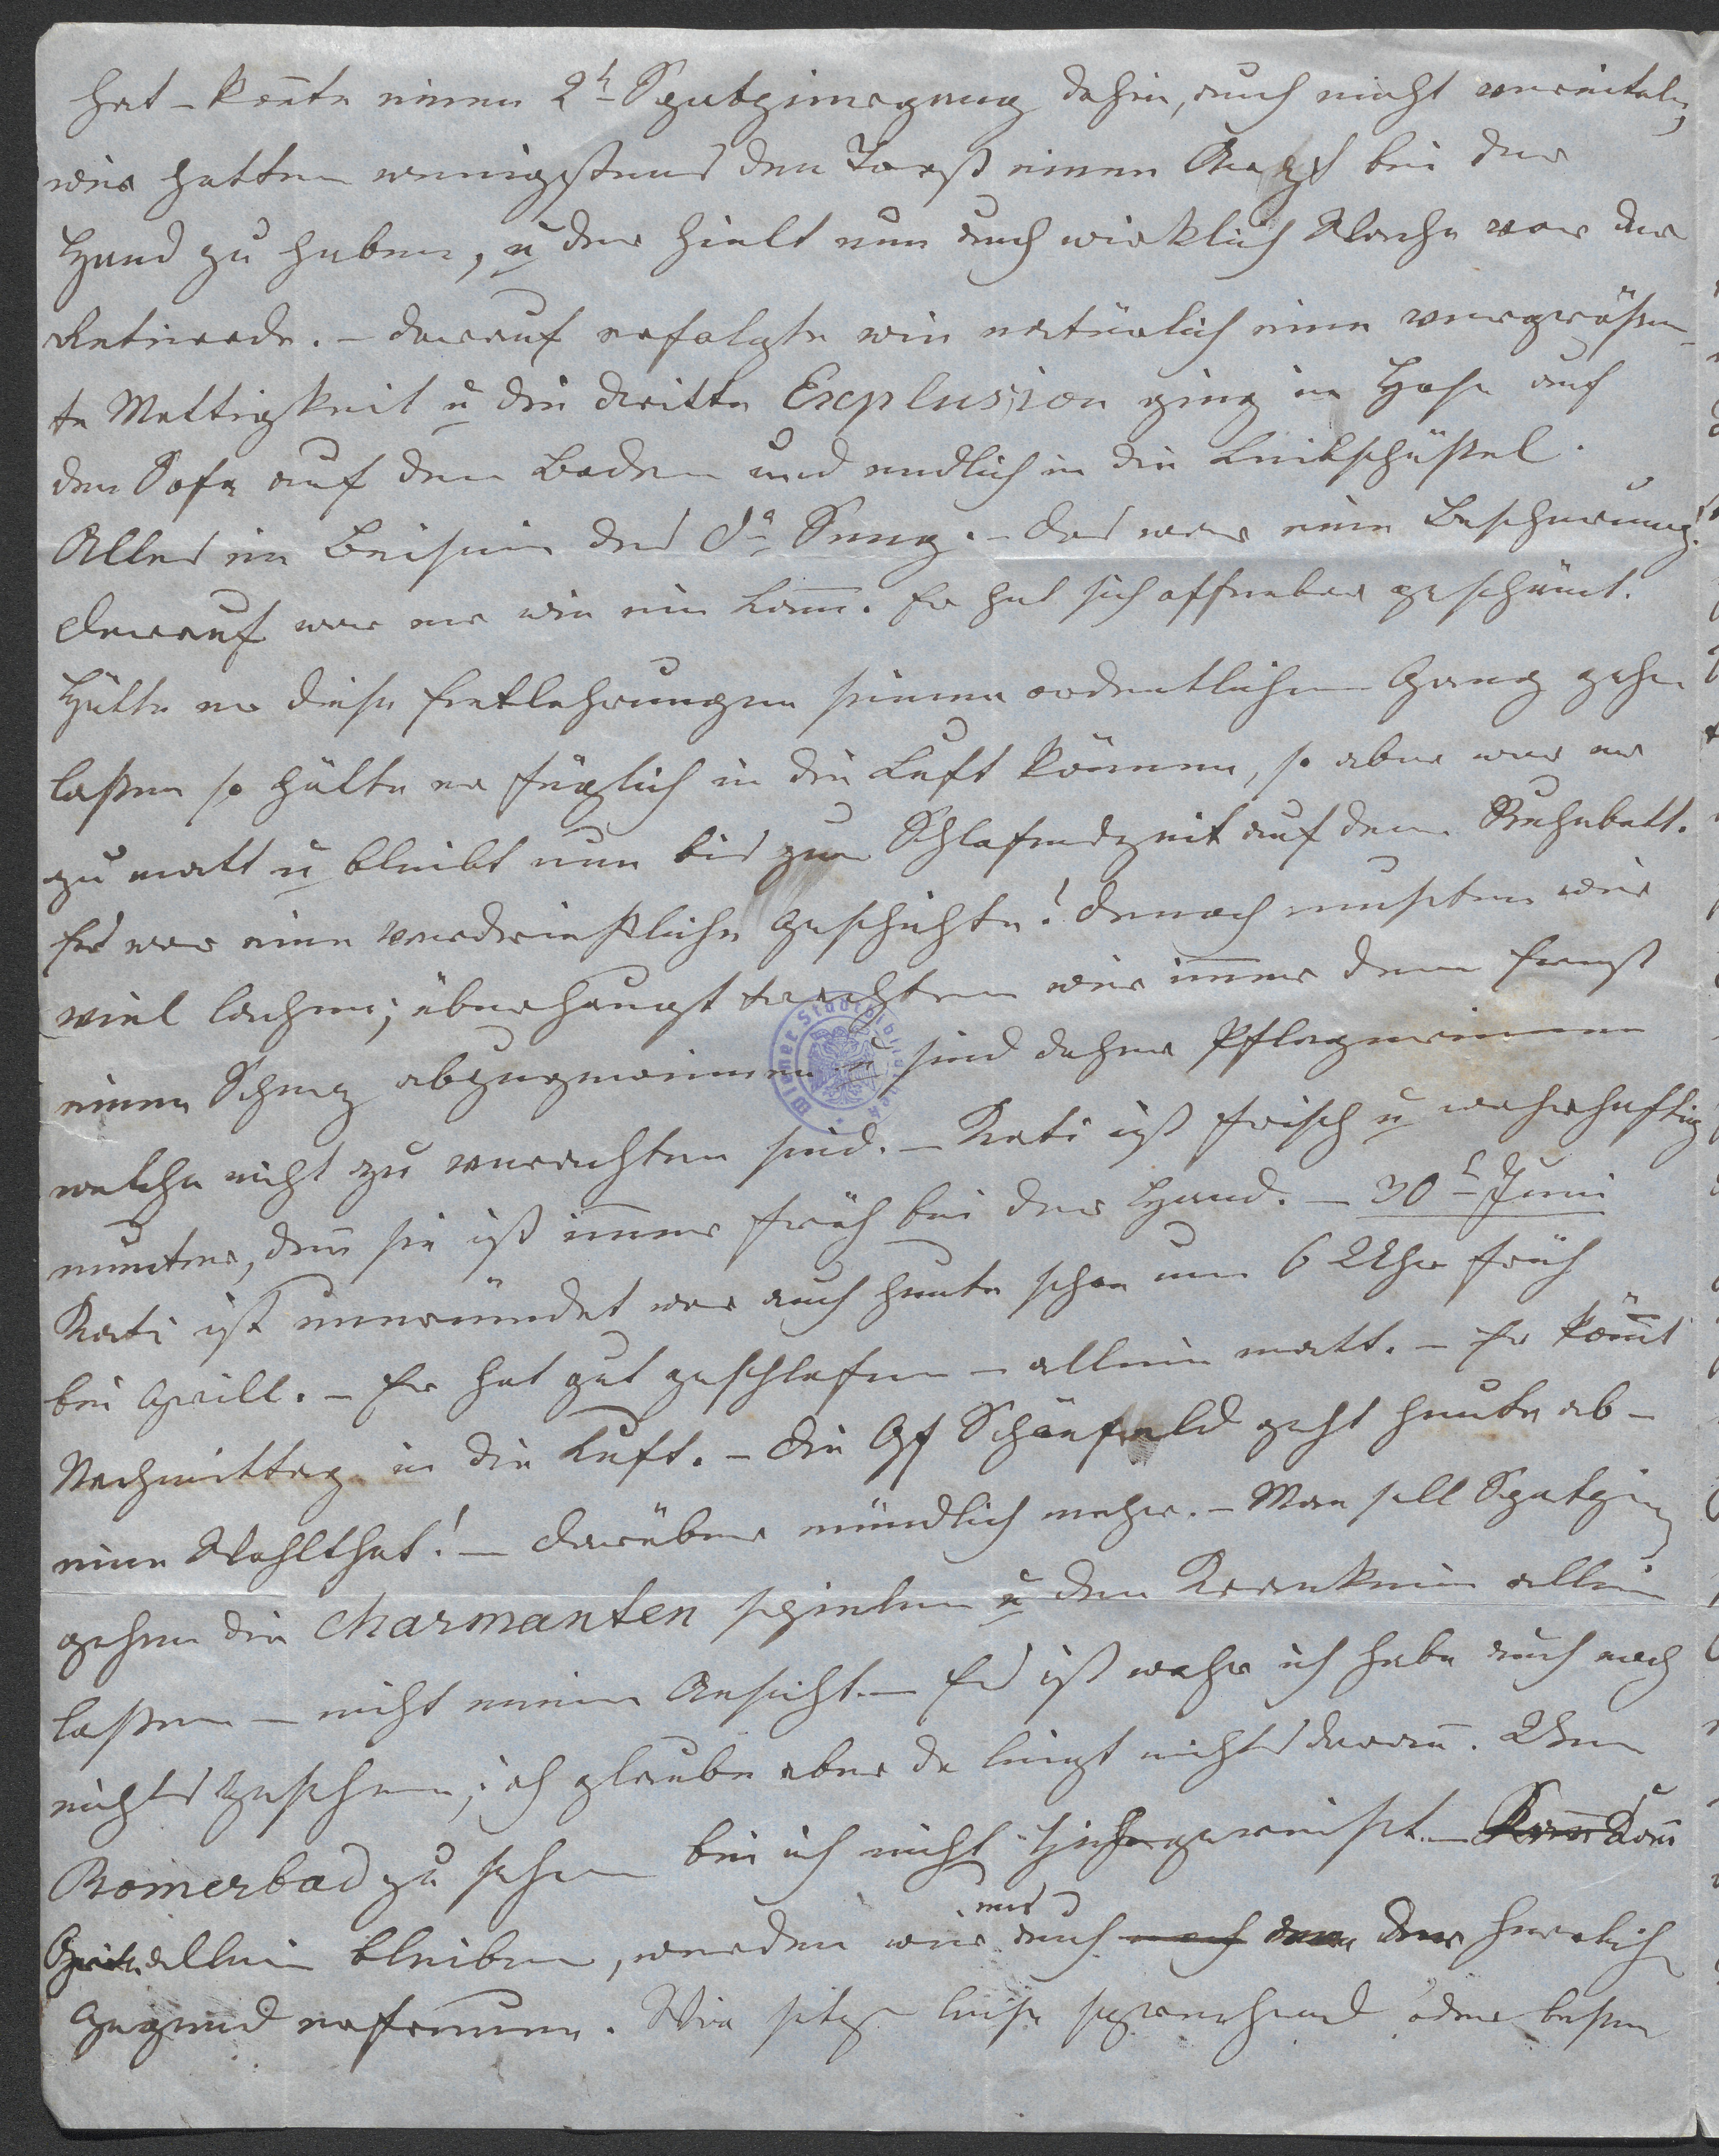 hat – konnte einen 2t Spatziergang dahin, auch nicht vereiteln,
wir hatten wenigstens den Trost einen Arzt bei der
Hand zu haben, u der hielt nun auch wirklich Wache vor der
Retirade. – darauf erfolgte wie natürlich eine vergrößer-
te Mattigkeit u die dritte Explusion ging in Hose auf
den Sofa auf dem Boden und endlich in die Leibschüßel.
Alles im Beisein des Dr – das war eine Bescherung!
darauf war er wie ein Lam̅. Er hat sich offenbar geschämt.
Hätte er diese Entlehrungen seinen ordentlichen Gang gehen
laßen so hätte er füglich in die Luft können, so aber war er
zu matt u bleibt nun bis zur Schlafenszeit auf dem Ruhebett.
Es war eine verdrießliche Geschichte! dennoch mußten wir
viel lachen; überhaupt trachten wir im̅er dem Ernst
einen Scherz abzugewinnen u sind daher Pflegerinnen
welche nicht zu verachten sind. – Kati ist frisch u wahrhaftig
munter, den̅ sie ist im̅er früh bei der Hand. – 30t Juni
Kati ist unermüdet war auch heute schon um 6 Uhr früh
bei Grill. – Er hat gut geschlafen – allein matt. – Er kom̅t
Nachmittag in die Luft. – die Gf Schönfeld geht heute ab –
eine Wohlthat! – darüber mündlich mehr. – Man soll Spatzieren
gehen die Charmanten spielen u den Kranken allein
laßen – nicht meine Ansicht. – Es ist wahr ich habe auch noch
nichts gesehen; ich glaube aber da liegt nichts daran̅. Um
Romerbad zu sehen bin ich nicht hieher gereist. –
allein bleiben, werden wir uns auch der herrlich
Gegend erfreuen. Wie leise sprechend oder beßer